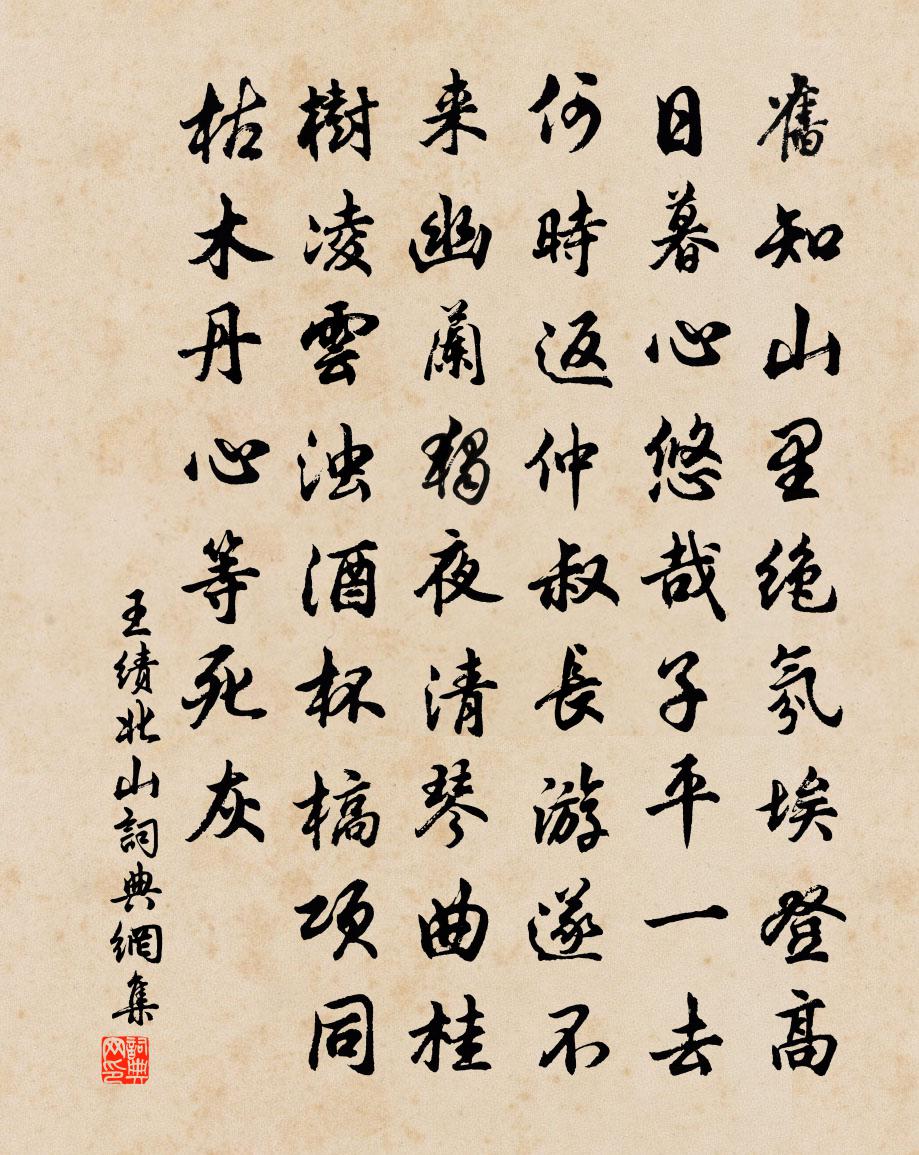 舊知山里绝氛埃登高
日暮心悠哉子平一去
何時返仲叔長游遂不
来幽蘭獨夜清琴曲桂
樹凌雲浊酒杯槁项同
枯木丹心等死灰
王績北山詞典網集
詞典网印